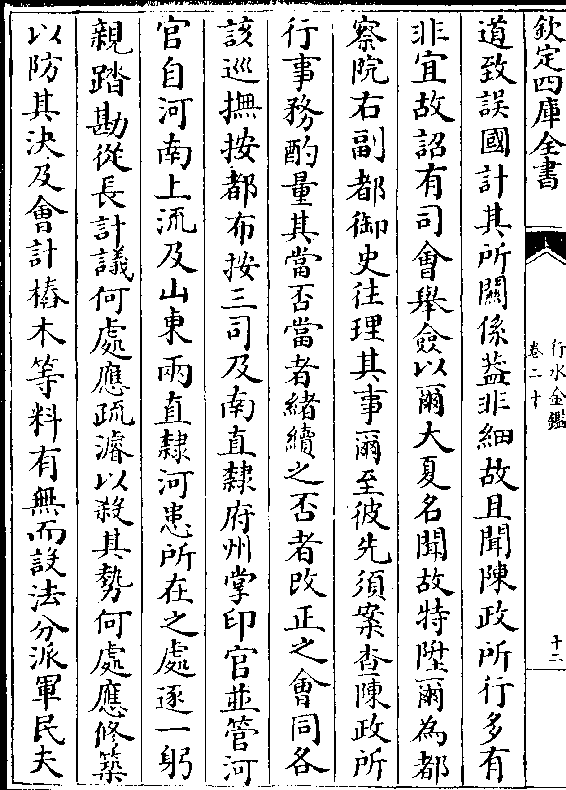 欽定四庫全書
行水金鑑
卷二十
十二
道致誤國計其所關係葢非細故且聞陳政所行多有
非宜故詔有司會舉僉以爾大夏名聞故特陞爾為都
察院右副都御史往理其事爾至彼先須案查陳政所
行事務酌量其當否當者緒續之否者改正之會同各
該巡撫按都布按三司及南直𨽻府州掌印官並管河
官自河南上流及山東兩直𨽻河患所在之處逐一躬
親踏勘從長計議何處應疏濬以殺其勢何處應修築
以防其決及會計樁木等料有無而設法分派軍民夫